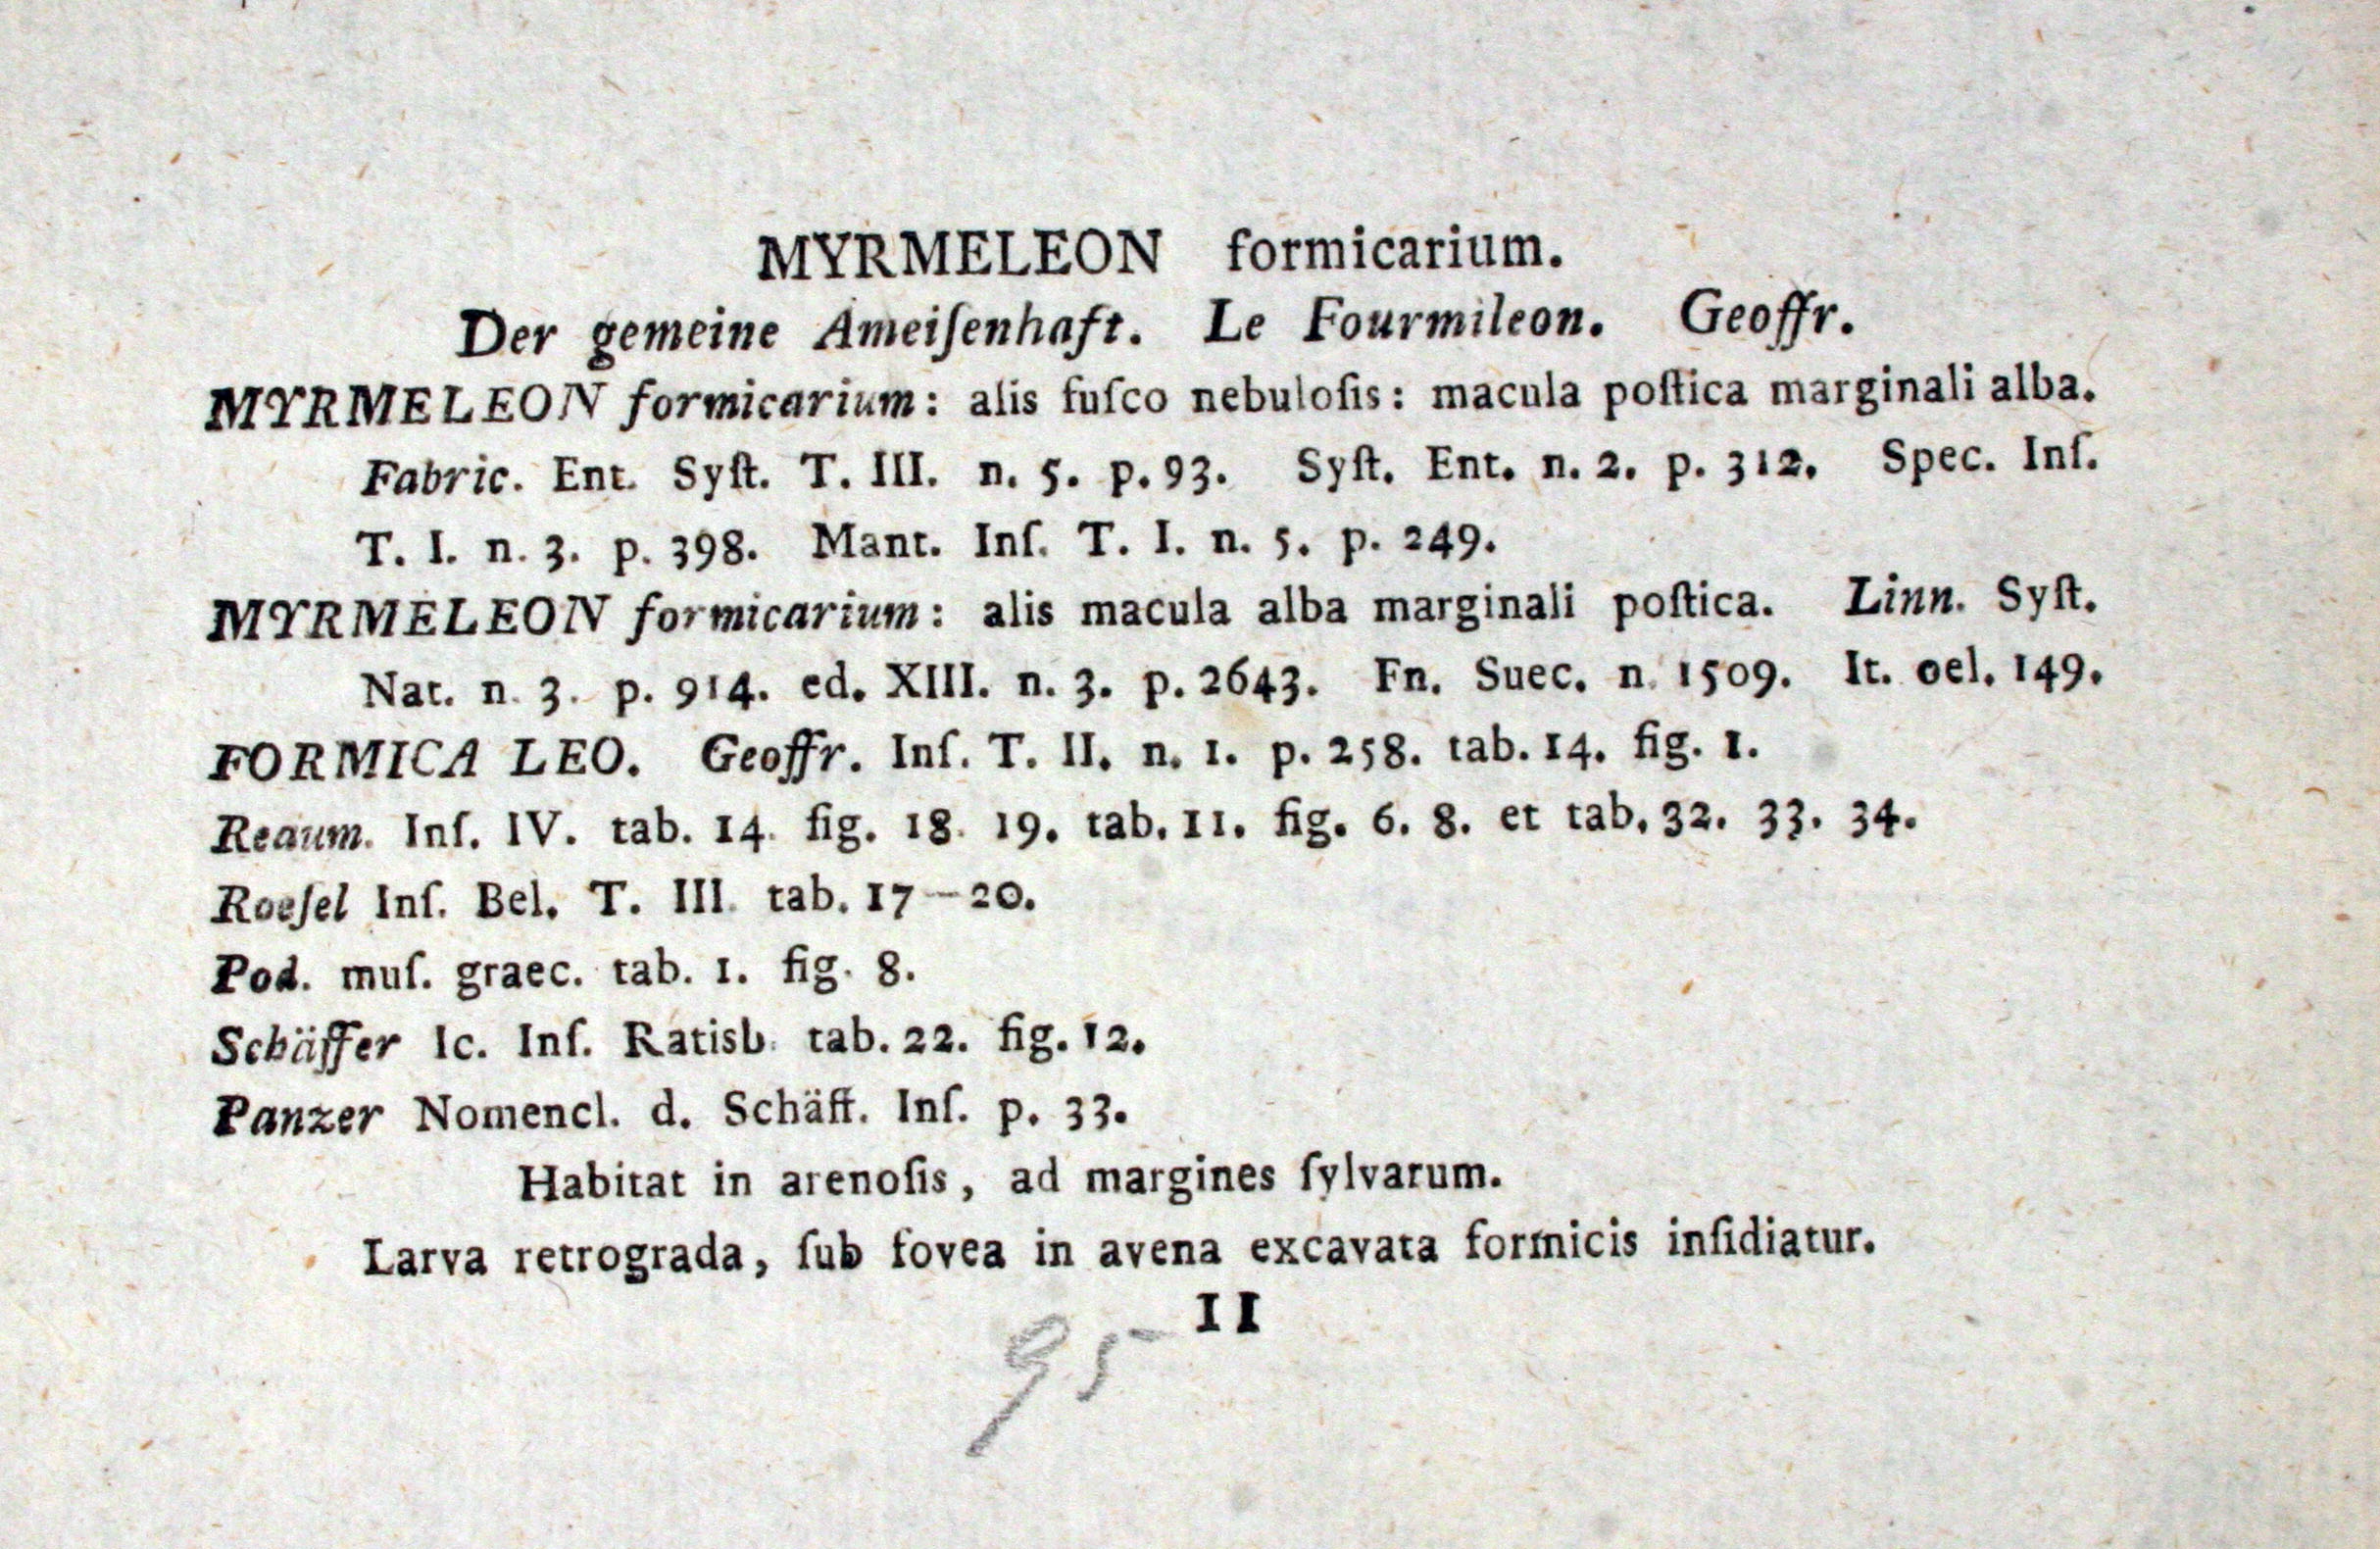 MYRMELEON formicarium.
Der gemeine Ameiſenhaft. Le Fourmileon. Geoffr.
MYRMELEON formicarium: alis fuſco nebuloſis: macula poſtica marginali alba.
Fabric. Ent. Syſt. T. III. n. 5. p. 93. Syſt. Ent. n. 2. p. 312. Spec. Inſ.
T. I. n. 3. p. 398. Mant. Inſ. T. I. n. 5. p. 249.
MYRMELEON formicarium: alis macula alba marginali poſtica. Linn. Syſt.
Nat. n. 3. p. 914. ed. XIII. n. 3. p. 2643. Fn. Suec. n. 1509. It. oel. 149.
FORMICA LEO. Geoffr. Inſ. T. II. n. 1. p. 258. tab. 14. fig. 1.
Reaum. Inſ. IV. tab. 14. fig. 18. 19. tab. 11. fig. 6. 8. et tab. 32. 33. 34.
Roeſel Inſ. Bel. T. III. tab. 17—20.
Pod. muſ. graec. tab. 1. fig. 8.
Schäffer Ic. Inſ. Ratisb. tab. 22. fig. 12.
Panzer Nomencl. d. Schäff. Inſ. p. 33.
Habitat in arenoſis, ad margines ſylvarum.
Larva retrograda, ſub fovea in avena excavata formicis inſidiatur.
11
95